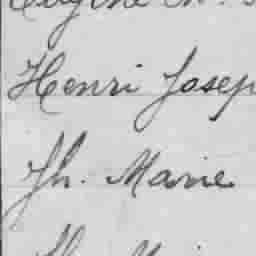 Eugène M.
Henri Josep
Jh. Marie